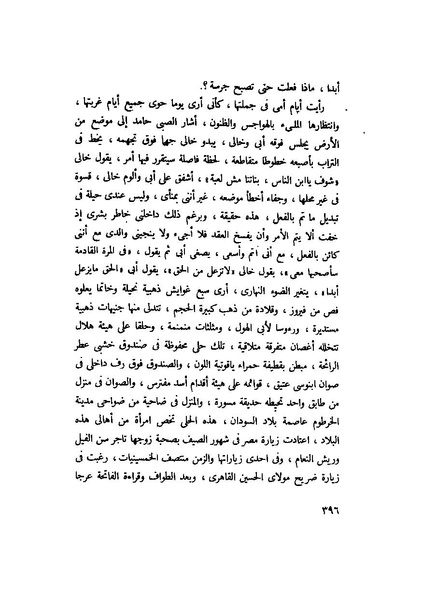 أبدا ، ماذا فعلت حتى تصبح جرسة ؟.
رأيت أيام أمى فى جملتها ، كأنى أرى يوما حوى جميع أيام غربتها ،
وانتظارها المليء بالهواجس والظنون ، أشار الصبى حامد إلى موضع من
الأرض يجلس فوقه أبى وخالى ، يبدو خالى جهما فوق تجهمه ، يخط فى
التراب بأصبعه خطوطا متقاطعة ، لحظة فاصلة سيتقرر فيها أمر ، يقول خالى
«شوف ياابن الناس ، بناتنا مش لعبة» ، أشفق على أبى وألوم خالى ، قسوة
فى غير محلها ، وجفاء أخطأ موضعه ، غير أننى بمنأى ، وليس عندى حيلة فى
تبديل ما تم بالفعل ، هذه حقيقة ، وبرغم ذلك داخلنى خاطر بشرى إذ
خفت ألا يتم الأمر وأن يفسخ العقد فلا أجىء ولا ينجبنى والدى مع أننى
كائن بالفعل ، مع أنى أتم وأسعى ، يصغى أبى ثم يقول ، «فى المرة القادمة
سأصحبها معى»، يقول خالى «لاتزعل من الحق»، يقول أبى «الحق مايزعل
أبدا» ، يتغير الضوء النهارى ، أرى سبع غوايش ذهبية نحيلة وخاتما يعلوه
فص من فيروز ، وقلادة من ذهب كبيرة الحجم ، تتدلى منها جنيهات ذهبية
مستديرة ، ورءوسا لأبى الهول ، ومثلثات منمنمة ، وحلقا على هيئة هلال
تتخلله أغصان متفرقة متلاقية ، تلك حلى محفوظة فى صندوق خشبى عطر
الرائحة ، مبطن بقطيفة حمراء ياقوتية اللون ، والصندوق فوق رف داخلى فى
صوان ابنوسى عتيق ، قوائمه على هيئة أقدام أسد مفترس ، والصوان فى منزل
من طابق واحد تحيطه حديقة مسورة ، والمنزل فى ضاحية من ضواحى مدينة
الخرطوم عاصمة بلاد السودان ، هذه الحلى تخص امرأة من أهالى هذه
البلاد ، اعتادت زيارة مصر فى شهور الصيف بصحبة زوجها تاجر سن الفيل
وريش النعام ، وفى احدى زياراتها والزمن منتصف الخمسينيات ، رغبت فى
زيارة ضريح مولاى الحسين القاهرى ، وبعد الطواف وقراءة الفاتحة عرجا
٣٩٦